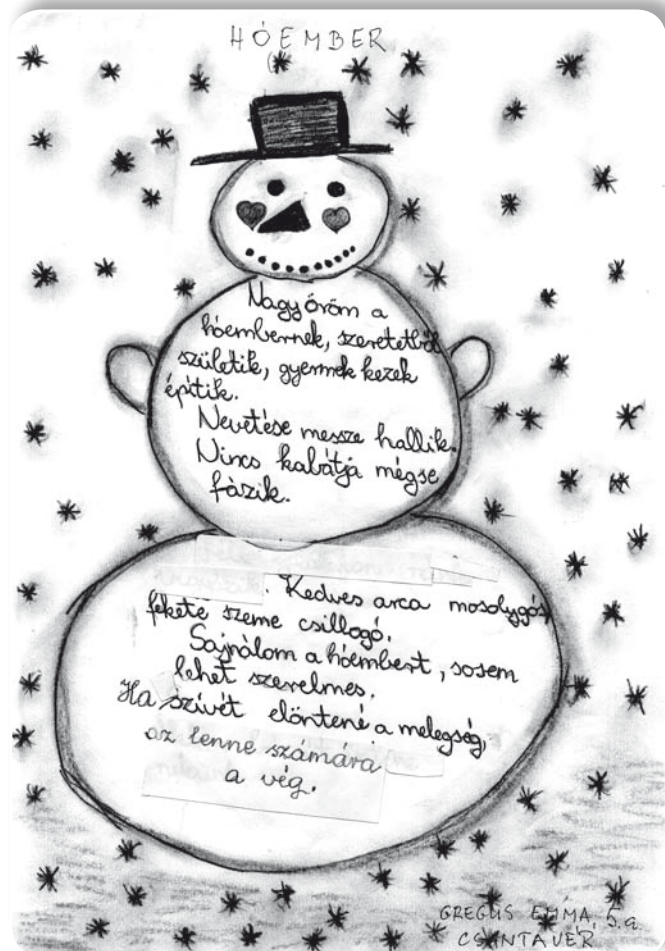 HÓEMBER
Nagy öröm a
hóembernek, szeretetből
születik, gyermek kezek
építik.
Nevetése messze hallik.
Nincs kabátja mégse
fázik.
Kedves arca mosolygós,
fekete szeme csillogó.
Sajnálom a hóembert, sosem
lehet szerelmes.
Ha szívét elöntené a melegség,
az lenne számára
a vég.
GREGUS EMMA, 5.a
CSANTAVÉR